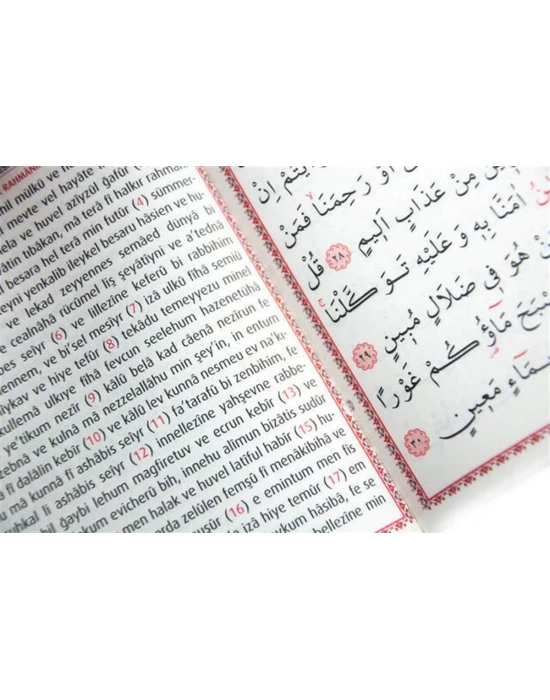 RAHMANİ
mülkü ve
mevte vel hayâte
ve huvel azîyzül ğafûr
tıbâkan, mâ terâ fî halkır rahmâni
besara hel terâ min futûr (4) sümmer-
yenkalib ileykel besaru hâsien ve hu-
ve lekad zeyyennes semâed dünyâ bi
cealnâhâ rücûmel liş şeyâtîyni ve a'tednâ
seıyr (6) ve lillezîne keferû bi rabbihim
ve bi'sel mesîyr (7) izâ ulkû fîhâ semiû
ve hiye tefûr (8) tekâdu temeyyezu minel
kullemâ ulkıye fîhâ fevcun seelehum hazenetühâ
e'tikum nezîr (9) kâlû belâ kad câenâ nezîrun fe
ve kulnâ mâ nezzelallâhu min şey'in, in entum
fî dalâlin kebîr (10) ve kâlû lev kunnâ nesmeu ev na'k-
mâ kunnâ fî ashâbis seıyr (11) fa'tarafû bi zenbihim, fe
li ashâbis seıyr (12) innellezîne yahşevne rabbe-
bil ğaybi lehum mağfiretuv ve ecrun kebîr (13) ve
evicherû bih, innehu alîmun bizâtis sudûr
men halak ve huvel latîful habîr (15) hu-
zelûlen femşû fî menâkibihâ ve
(16) e emintum men fis
izâ hiye temûr (17) em
hâsibâ, fe se
bellezîne min
اِنْ
اَوْ رَحِمَنَا فَمَنْ
مِنْ عَذَابٍ اَلٖيمٍ ٢٨ قُلْ
اٰمَنَّا بِهٖ وَعَلَيْهِ تَوَكَّلْنَا
هُوَ فٖي ضَلَالٍ مُبٖينٍ ٢٩
مَاؤُكُمْ غَوْرًا
مَعٖينٍ ٣٠